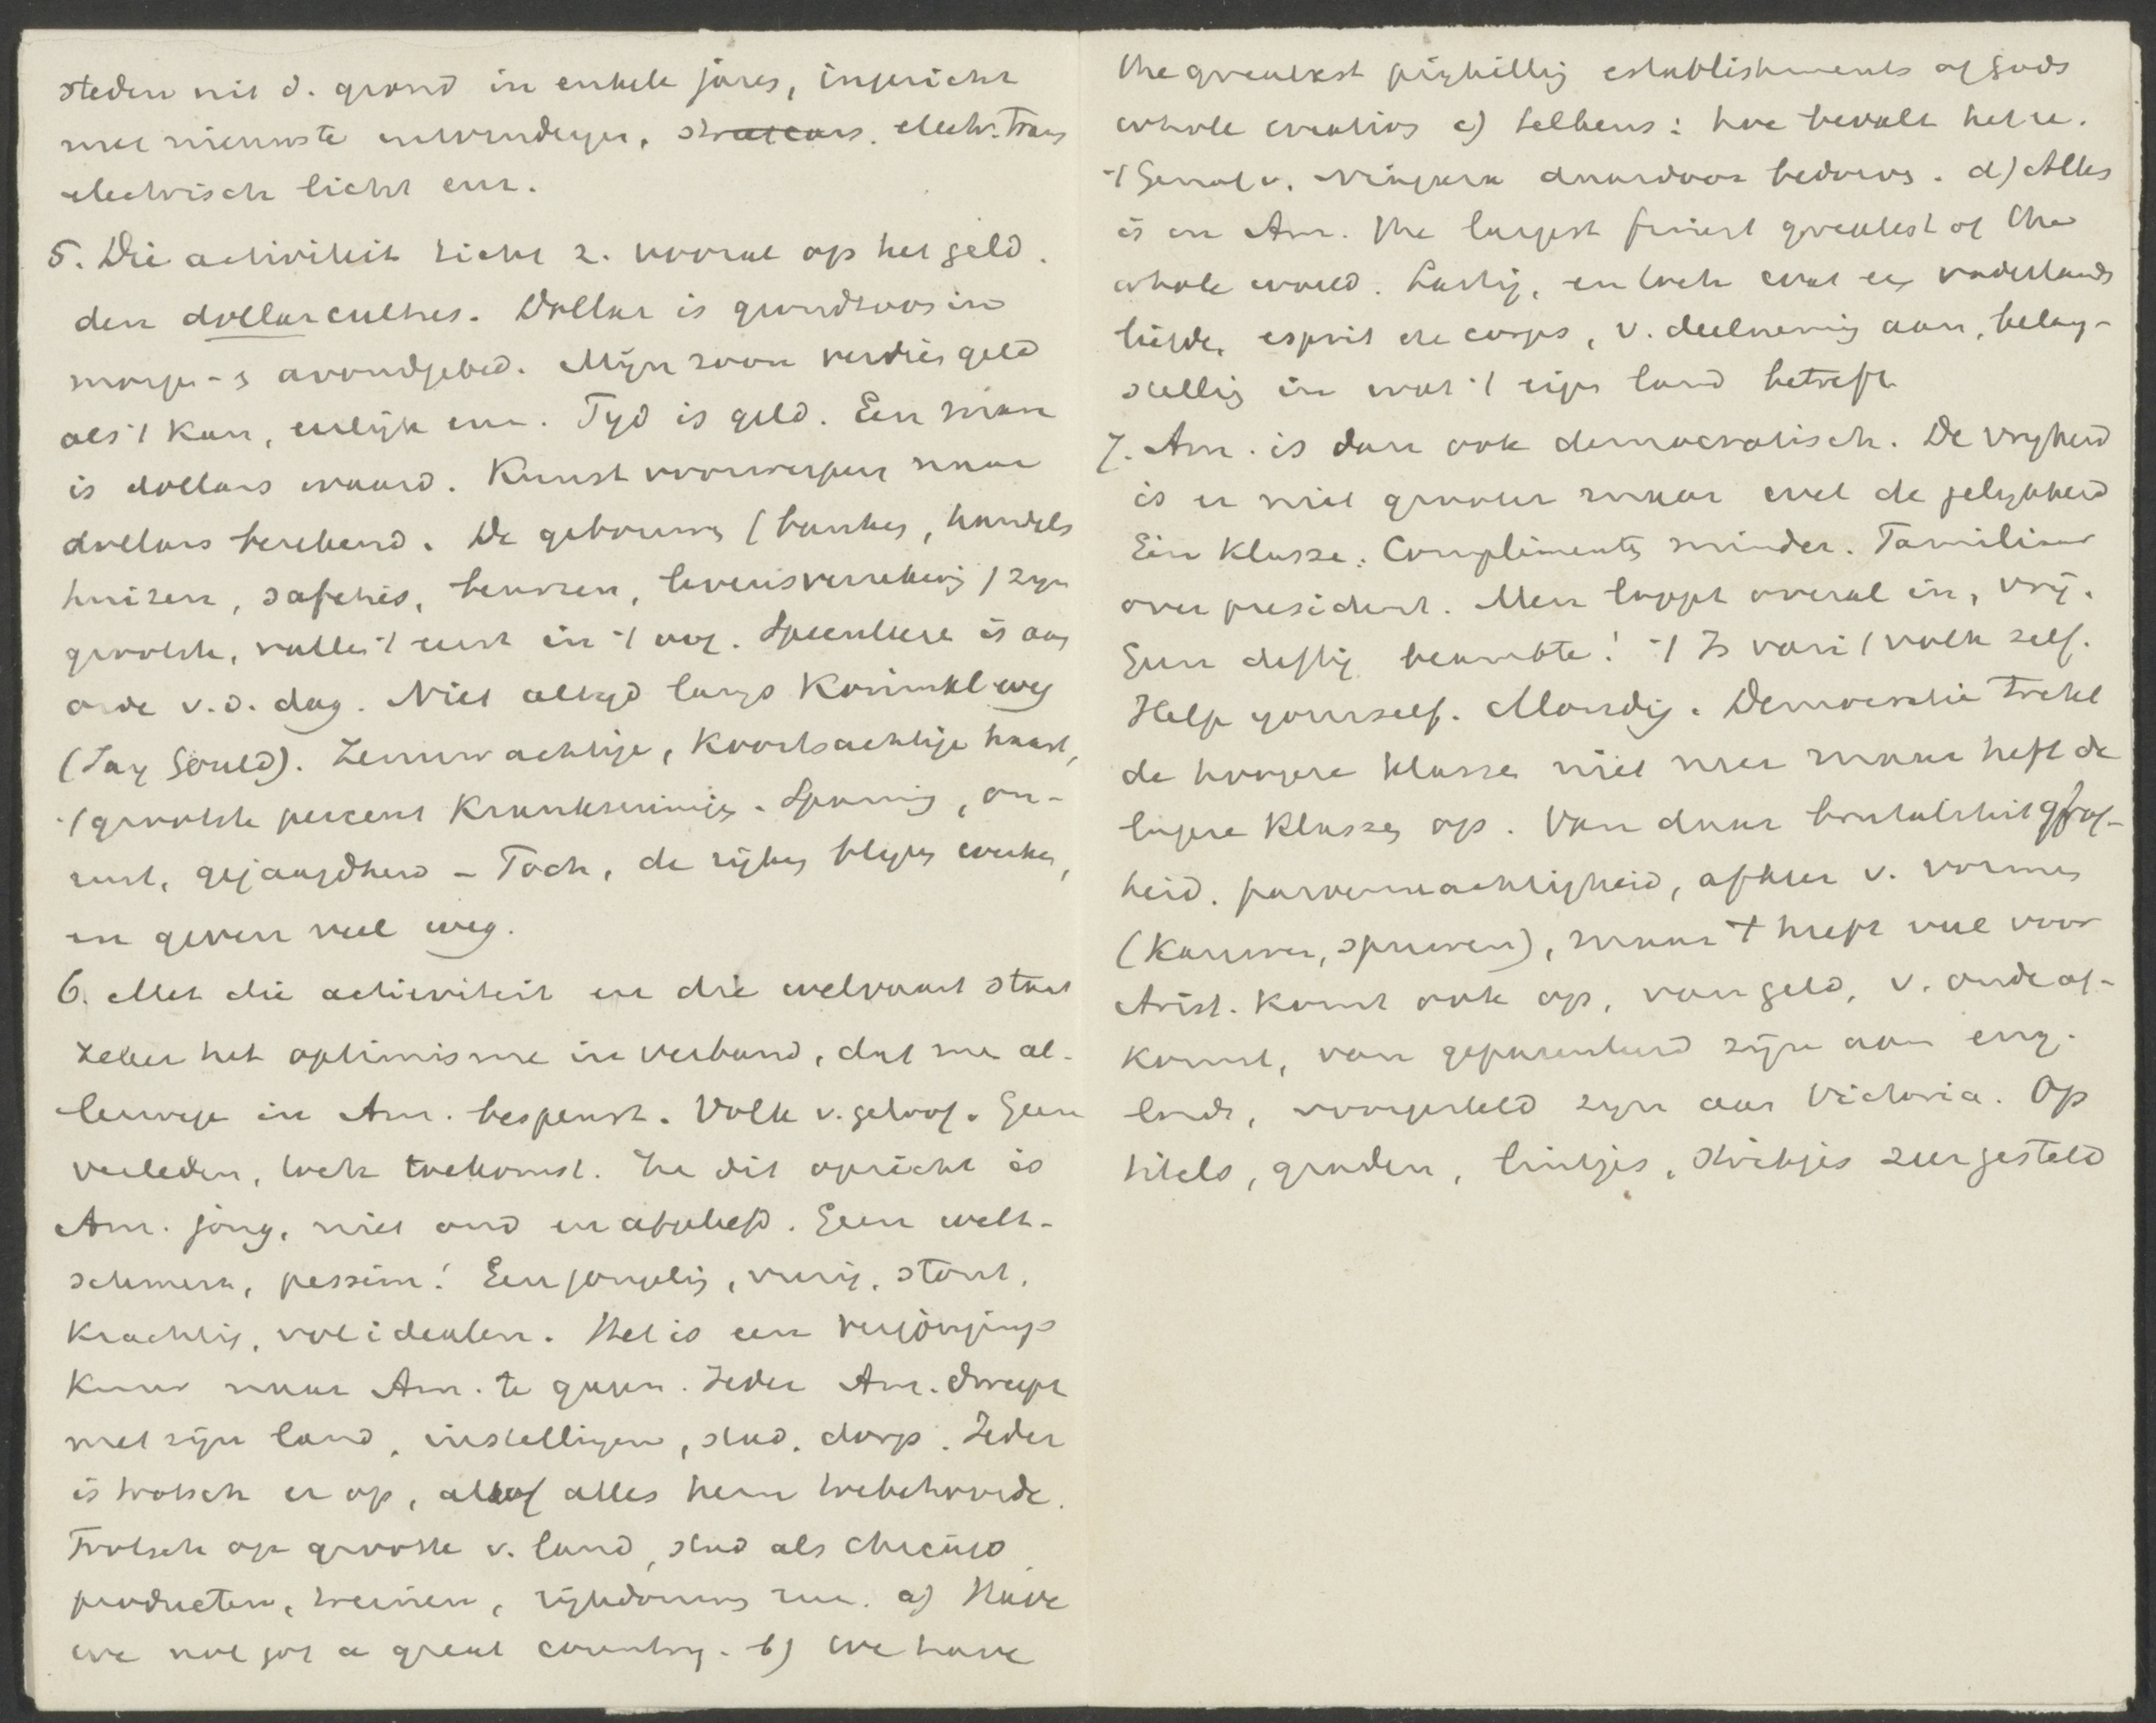 steden uit d. grond in enkele jaren, ingericht
met nieuwste uitvindingen, streetcars. electr. trams
electrisch licht enz.
5. Die activiteit richt z. vooral op het geld.
den dollarcultus. Dollar is grondtoon in
morgen- & avondgebed. Mijn zoon verdien geld
als 't kan, eerlijk enz. Tijd is geld. Een man
is dollars waard. Kunstvoorwerpen naar
dollars berekend. De gebouwen (banken, handels
huizen, safehis, beurzen, levensverzekering) zijn
grootsch, vallen 't eerst in 't oog. Speculatie is aan
orde v.d. dag. Niet altijd langs Koninkl. weg
(Jay Gould). Zenuwachtige, koortsachtige haast,
't grootste percent krankzinnigen. Spanning, on-
rust, gejaagdheid – Toch, de rijken blijven werken,
en geven veel weg.
6. Met die activiteit en die welvaart staat
zeker het optimisme in verband, dat me al-
lerwege in Am. bespeurt. Volk v. geloof. Geen
verleden, toch toekomst. In dit opzicht is
Am. jong, niet oud en afgeleefd. Geen welt-
schmerz, pessim! Een jongeling, vurig, stout,
krachtig, vol idealen. Het is een verjongings
kuur naar Am. te gaan. Ieder Am. dweept
met zijn land, instellingen, stad, dorp. Ieder
is trotsch er op, alsof alles hem toebehoorde.
Trotsch op grootte v. land, stad als Chicago
producten, treinen, rijkdommen enz. a) Have
we not got a great country. b) We have
the greatest pigkilling establishments of Gods
whole creation c) telkens: hoe bevalt het u.
't Genot v. daardoor bedorven. d) Alles
is in Am. the largest finest greatest of the
whole world. Lastig, en toch wat een vaderlands
liefde, esprit de corps, v. deelneming aan, belang-
stelling in wat 't eigen land betreft
7. Am. is dan ook democratisch. De vrijheid
is er niet grooter maar wel de gelijkheid
Eén klasse. Complimenten minder. Familiaar
over president. Men loopt overal in, vrij.
Geen deftig beambte! 't Is van 't volk zelf.
Help yourself. Mondig. Democratie trekt
de hoogere klassen niet neer maar heft de
lagere klassen op. Van daar brutaliteit grof-
heid. parvenuachtigheid, afkeer v. vormen
(kauwen, spuwen), maar † heeft veel voor
Arist. komt ook op, van geld, v. oude af-
komst, van geparenteerd zijn aan eng.
lords, voorgesteld zijn aan Victoria. Op
titels, graden, lintjes, strikjes zeer gesteld